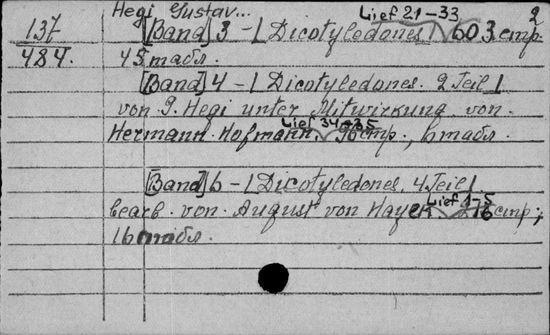 Hegi Gustav...
137
484.
Lief 21-33
[Band] 3 - [Dicotyledones] 603 стр. 2
45 табл.
[Band] 4 - [Dicotyledones. 2 Teil]
von G. Hegi unter Mitwirkung von
Lief 34-35
Hermann Hofmann. 96 стр., 6 табл.
[Band] 6 - [Dicotyledones. 4 Teil]
Lief 1-5
bearb. von August von Hayek 216 стр.,
16 табл.